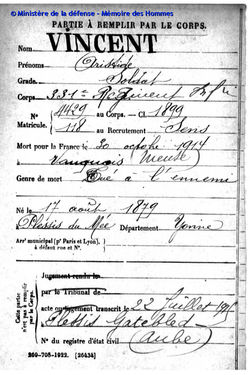 © Ministère de la défense - Mémoire des Hommes
PARTIE À REMPLIR PAR LE CORPS.
Nom VINCENT
Prénoms Aristide
Grade Soldat
Corps 331e Régiment Inf
N° 4429 au Corps. - Cl 1899
Matricule. 118 au Recrutement Sens
Mort pour la France le 30 octobre 1914
à Vauquois (Meuse)
Genre de mort Tué à l'ennemi
Né le 17 août 1879
à Plessis du Mée Département Yonne
Arr' municipal (p' Paris et Lyon),
à défaut rue et N°.
Cette partie
n'est pas à remplir
par le Corps.
Jugement rendu le
par le Tribunal de
acte ou jugement transcrit le 22 Juillet
à Plessis Gatebled
(Aube)
N° du registre d'état civil
269-708-1922. [26434]